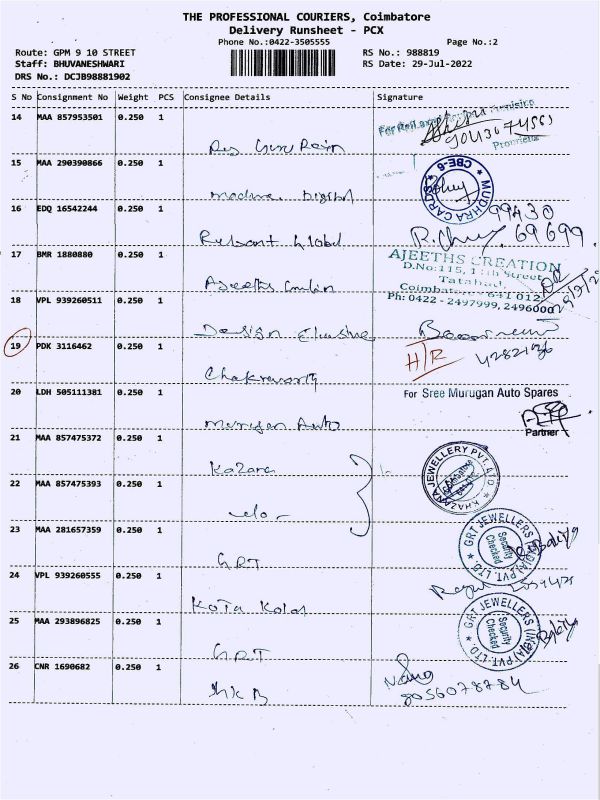 THE PROFESSIONAL COURIERS, Coimbatore
Delivery Runsheet - PCX
Phone No.:0422-3505555
Page No.:2
Route: GPM 9 10 STREET
RS No.: 988819
Staff: BHUVANESHWARI
RS Date: 29-Jul-2022
DRS No.: DCJB98881902
S No Consignment No Weight PCS Consignee Details Signature
14 MAA 857953501 0.250 1
Proprietrix
15 MAA 290390866 0.250 1
MUDHRA CARDS CBE-6
Digital
16 EDQ 16542244 0.250 1
99430
69699
Global
17 BMR 1880880 0.250 1
AJEETHS CREATION
D.No:115, 11th Street
Tatabad,
Coimbatore - 641 012
Ajeeths
Ph: 0422 - 2497999, 2496000
18 VPL 939260511 0.250 1
Design
19 PDK 3116462 0.250 1
H/R
Chakravorty
20 LDH 505111381 0.250 1
For Sree Murugan Auto Spares
Murugan Auto
Partner
21 MAA 857475372 0.250 1
KHAZANA JEWELLERY PVT. LTD
Kazana
22 MAA 857475393 0.250 1
-do-
23 MAA 281657359 0.250 1
GRT JEWELLERS (INDIA) PVT. LTD.
Security Checked
GRT
24 VPL 939260555 0.250 1
Kota Kolai
25 MAA 293896825 0.250 1
GRT JEWELLERS (INDIA) PVT. LTD.
Security Checked
GRT
26 CNR 1690682 0.250 1
8056078784